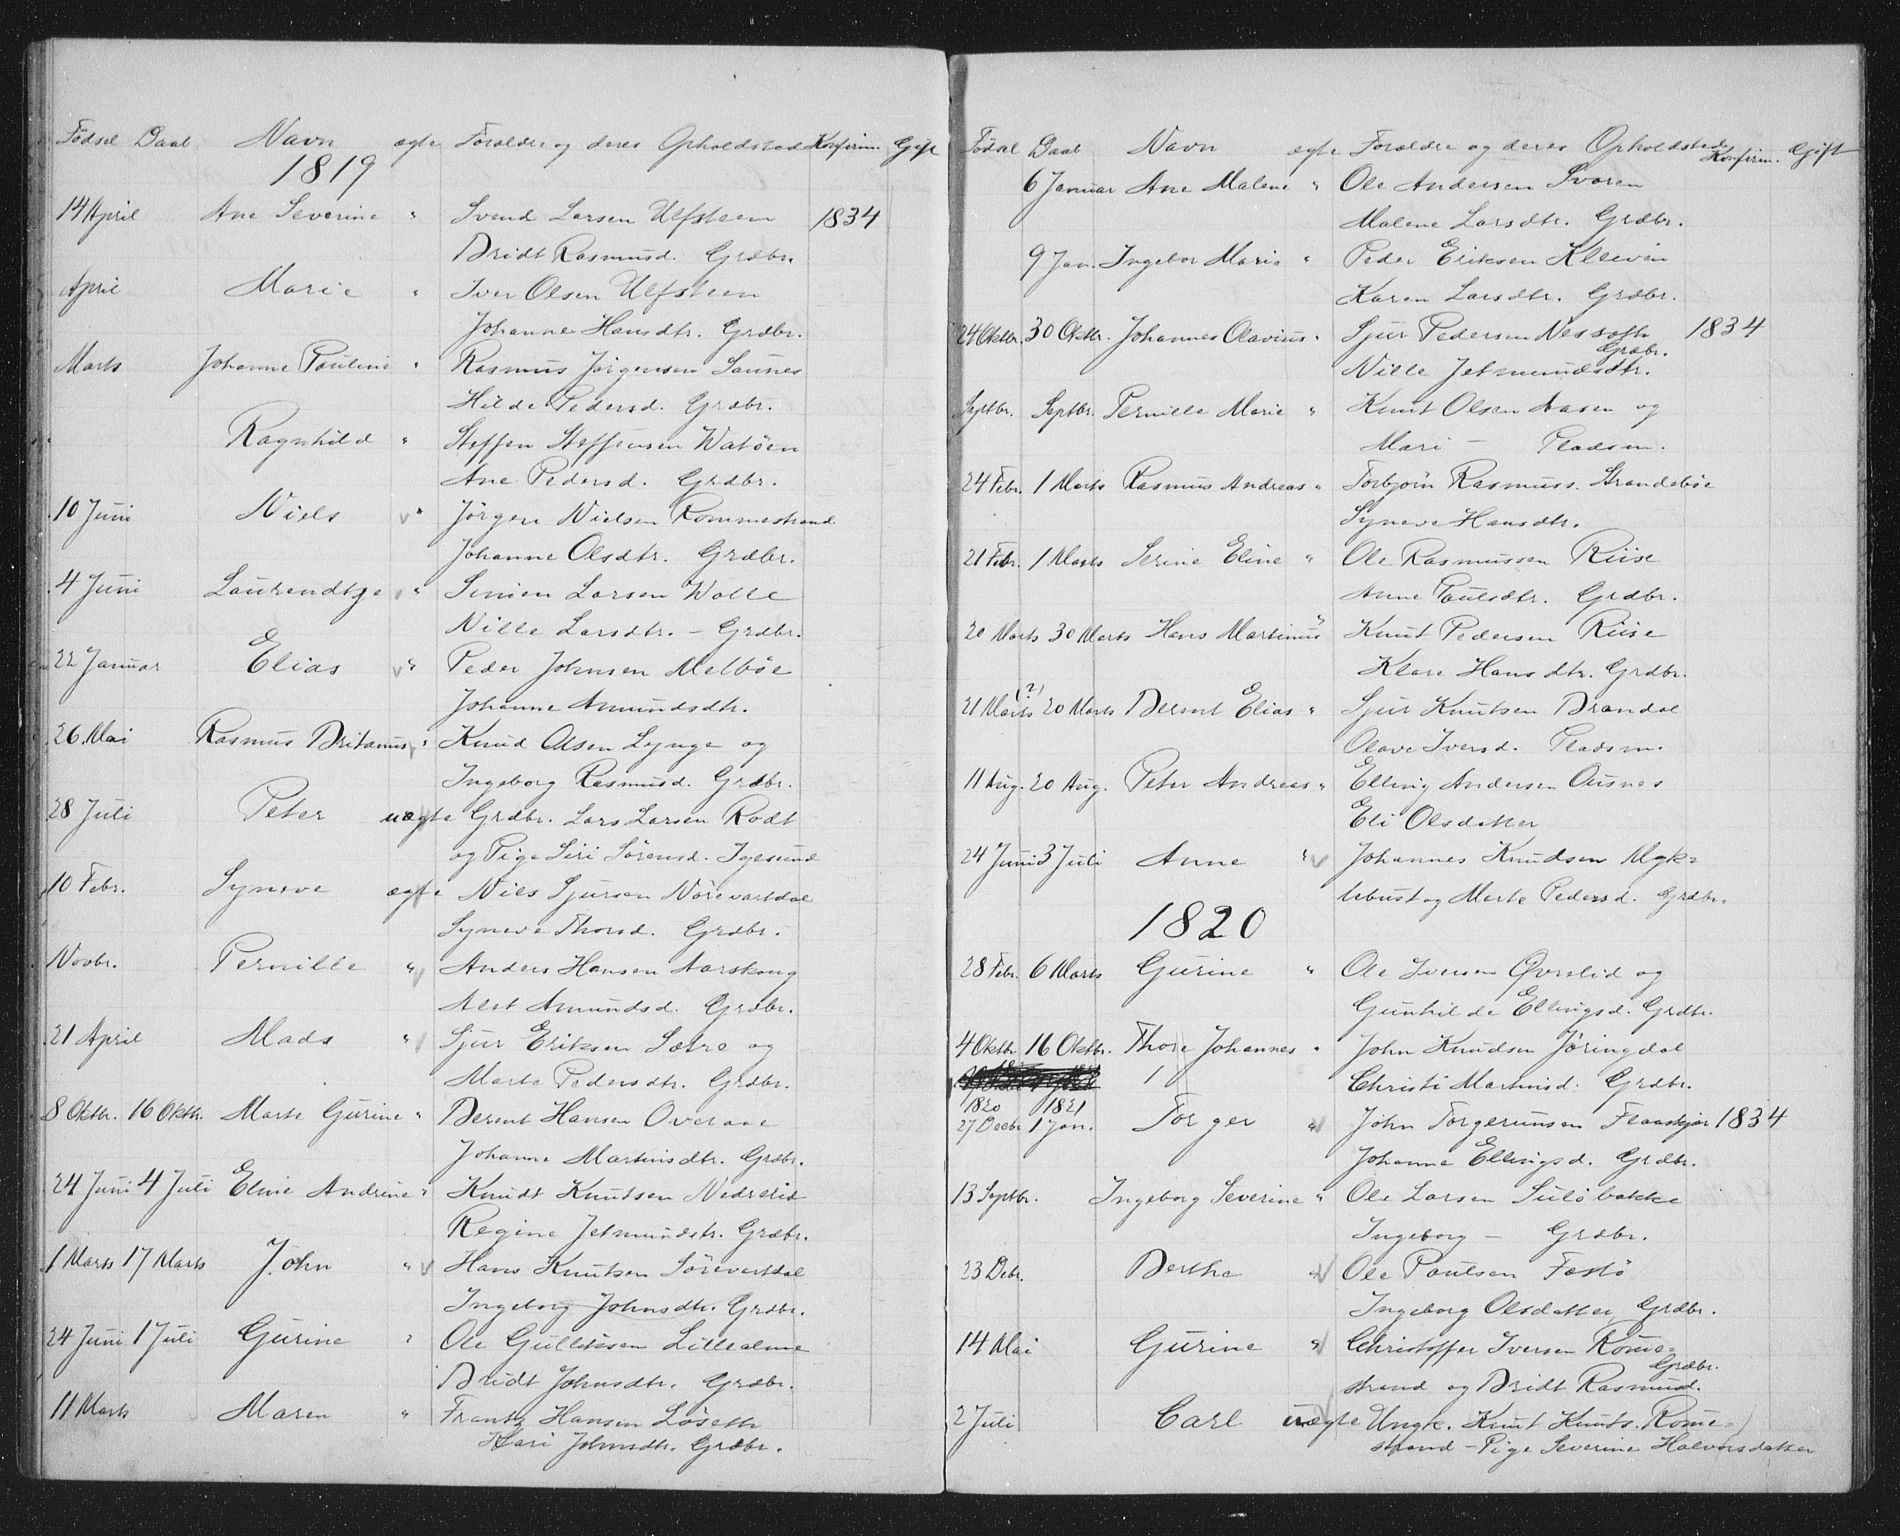 Fødsel Daab Navn ægte Forældre og deres Opholdsted Konfirm. Gift
1819
14 April Ane Severine " Svend Larsen Ulfsteen 1834
Bridt Rasmusd. Grdbr.
April Marie " Iver Olsen Ulfsteen
Johanne Hansdtr. Grdbr.
Marts Johanne Pauline " Rasmus Jørgensen Saunes
Hilde Pedersd. Grdbr.
" Ragnhild " Steffen Steffensen Watöen
Ane Pedersd. Grdbr.
10 Juni Niels " Jörgen Nielsen Rommestrand
Johanne Olsdtr. Grdbr.
4 Juni Laurendtze " Simen Larsen Wolle
Nille Larsdtr. - Grdbr.
22 Januar Elias " Peder Johnsen Melböe
Johanne Amundsdtr.
26 Mai Rasmus Britanus " Knud Olsen Lynge og
Ingeborg Rasmusd. Grdbr.
28 Juli Peter uægte Grdbr. Lars Larsen Rödt
og Pige Siri Sörensd. Igesund
10 Febr. Syneve ægte Niels Sjursen Nörevartdal
Syneve Thorsd. Grdbr.
Novbr. Pernille " Anders Hansen Aarskoug
Alet Amundsd. Grdbr.
21 April Mads " Sjur Eriksen Sætre og
Marte Pedersdtr. Grdbr.
8 Oktbr. 16 Oktbr. Marte Gurine " Berent Hansen Overaae
Johanne Martinsdtr. Grdbr.
24 Juni 4 Juli Eline Andrine " Knudt Knutsen Nedrelid
Regine Jetmundstr. Grdbr.
1 Marts 17 Marts John " Hans Knutsen Sörevartdal
Ingeborg Johnsdtr. Grdbr.
24 Juni 1 Juli Gurine " Ole Gulliksen Lillealme
Bridt Johnsdtr. Grdbr.
11 Marts Maren " Frantz Hansen Löseth
Kari Johnsdtr. Grdbr.
Fødsel Daab Navn ægte Forældre og deres Opholdsted Konfirm. Gift
6 Januar Ane Malene " Ole Andersen Svoren
Malene Larsdtr. Grdbr.
9 Jan. Ingebor Marie " Peder Eriksen Kleiven
Karen Larsdtr. Grdbr.
24 Oktbr. 30 Oktbr. Johannes Olavius " Sjur Pedersen Nesseth 1834
Grdbr.
Nille Jetmundsdtr.
Septbr. Septbr. Pernille Marie " Knut Olsen Aasen og
Mari - Pladsm.
24 Febr. 1 Marts Rasmus Andreas " Torbjørn Rasmuss. Strandeböe
Syneve Hansdtr.
21 Febr. 1 Marts Serine Eline " Ole Rasmussen Riise
Anne Poulsdtr. Grdbr.
20 Marts 30 Marts Hans Martinus " Knut Pedersen Riise
Klare Hansdtr. Grdbr.
21 Marts (?) 20 Marts Berent Elias " Sjur Knutsen Brandal
Olave Iversd. Pladsm.
11 Aug. 20 Aug. Peter Andreas " Elling Andersen Ousnes
Eli Olsdatter
24 Juni 3 Juli Anne " Johannes Knudsen Myk=
lebust og Marte Pedersd. Grdbr.
1820
28 Febr. 6 Marts Gurine " Ole Iversen Øvrelid og
Gunhilde Ellingsd. Grdbr.
4 Oktbr. 16 Oktbr. Thore Johannes " John Knudsen Jøringdal
Christi Martinsd. Grdbr.
1820 1821
27 Decbr. 1 Jan. Torger " John Torgersen Flaaskjær 1834
Johanne Ellingsd. Grdbr.
13 Septbr. Ingeborg Severine " Ole Larsen Sulöbakke
Ingeborg - Grdbr.
23 Debr. Berthe " Ole Poulsen Festö
Ingeborg Olsdatter Grdbr.
14 Mai Gurine " Christoffer Iversen Rome=
Grdbr.
strand og Bridt Rasmusd.
2 Juli Carl uægte Ungk. Knut Knuts. Rome=
strand - Pige Severine Halvorsdatter